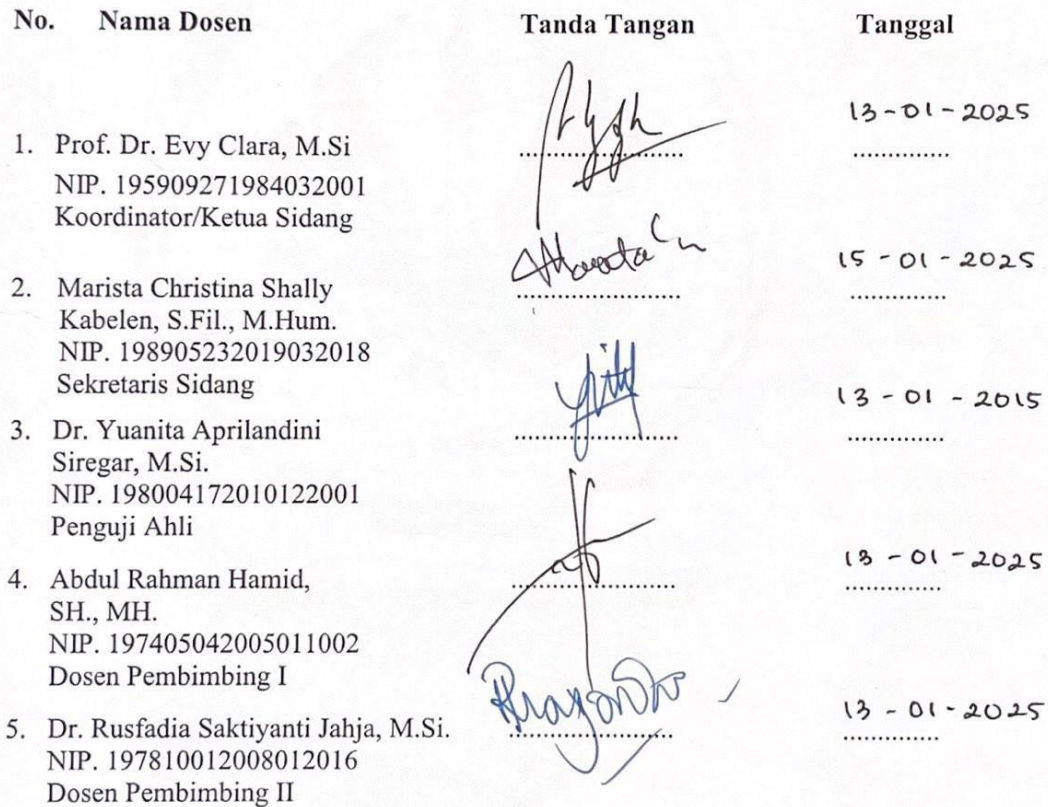 No. Nama Dosen Tanda Tangan Tanggal
13-01-2025
1. Prof. Dr. Evy Clara, M.Si ................. .............
NIP. 195909271984032001
Koordinator/Ketua Sidang
15-01-2025
2. Marista Christina Shally ................. .............
Kabelen, S.Fil., M.Hum.
NIP. 198905232019032018
Sekretaris Sidang
13-01-2015
3. Dr. Yuanita Aprilandini ................. .............
Siregar, M.Si.
NIP. 198004172010122001
Penguji Ahli
13-01-2025
4. Abdul Rahman Hamid, ................. .............
SH., MH.
NIP. 197405042005011002
Dosen Pembimbing I
13-01-2025
5. Dr. Rusfadia Saktiyanti Jahja, M.Si. ................. .............
NIP. 197810012008012016
Dosen Pembimbing II